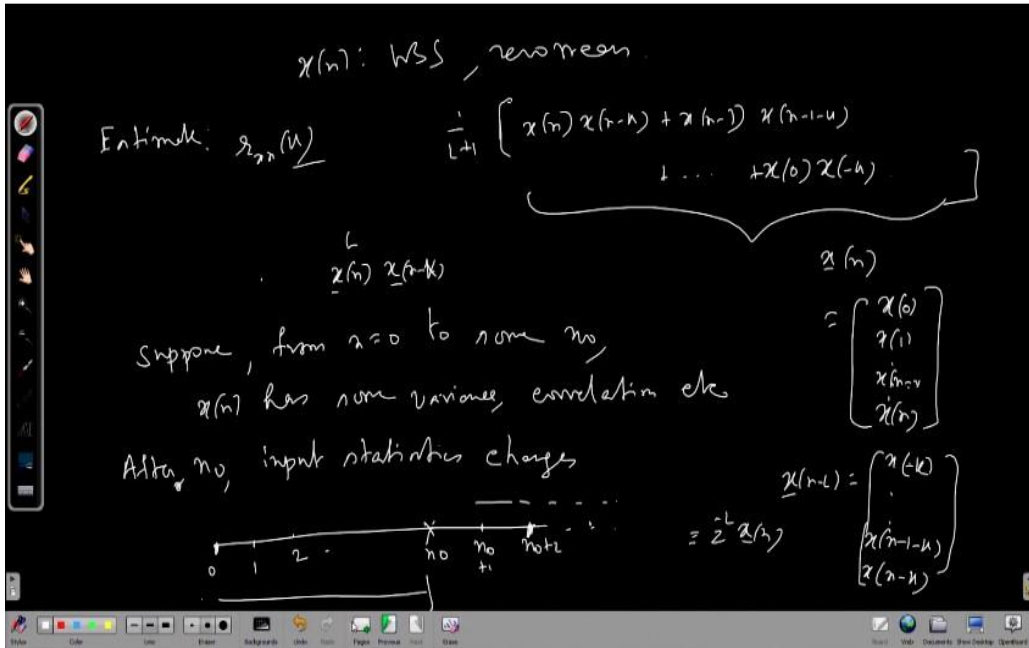 x(n): WSS, zero mean.
Estimate: r_xx(k) 1/(L+1) [ x(n) x(n-k) + x(n-1) x(n-1-k)
+ ... + x(0) x(-k) ]
L
x(n) x(n-k)
x(n)
= [ x(0)
x(1)
x(n-1)
x(n) ]
Suppose, from n=0 to some n0,
x(n) has some variance, correlation etc
After n0, input statistics changes
x(n-k) = [ x(-k)
x(n-1-k)
x(n-k) ]
0 1 2 . n0 n0+1 n0+2
Styles Color Line Eraser Backgrounds Undo Redo Pages Previous Next Erase Board Web Documents Show Desktop OpenBoard